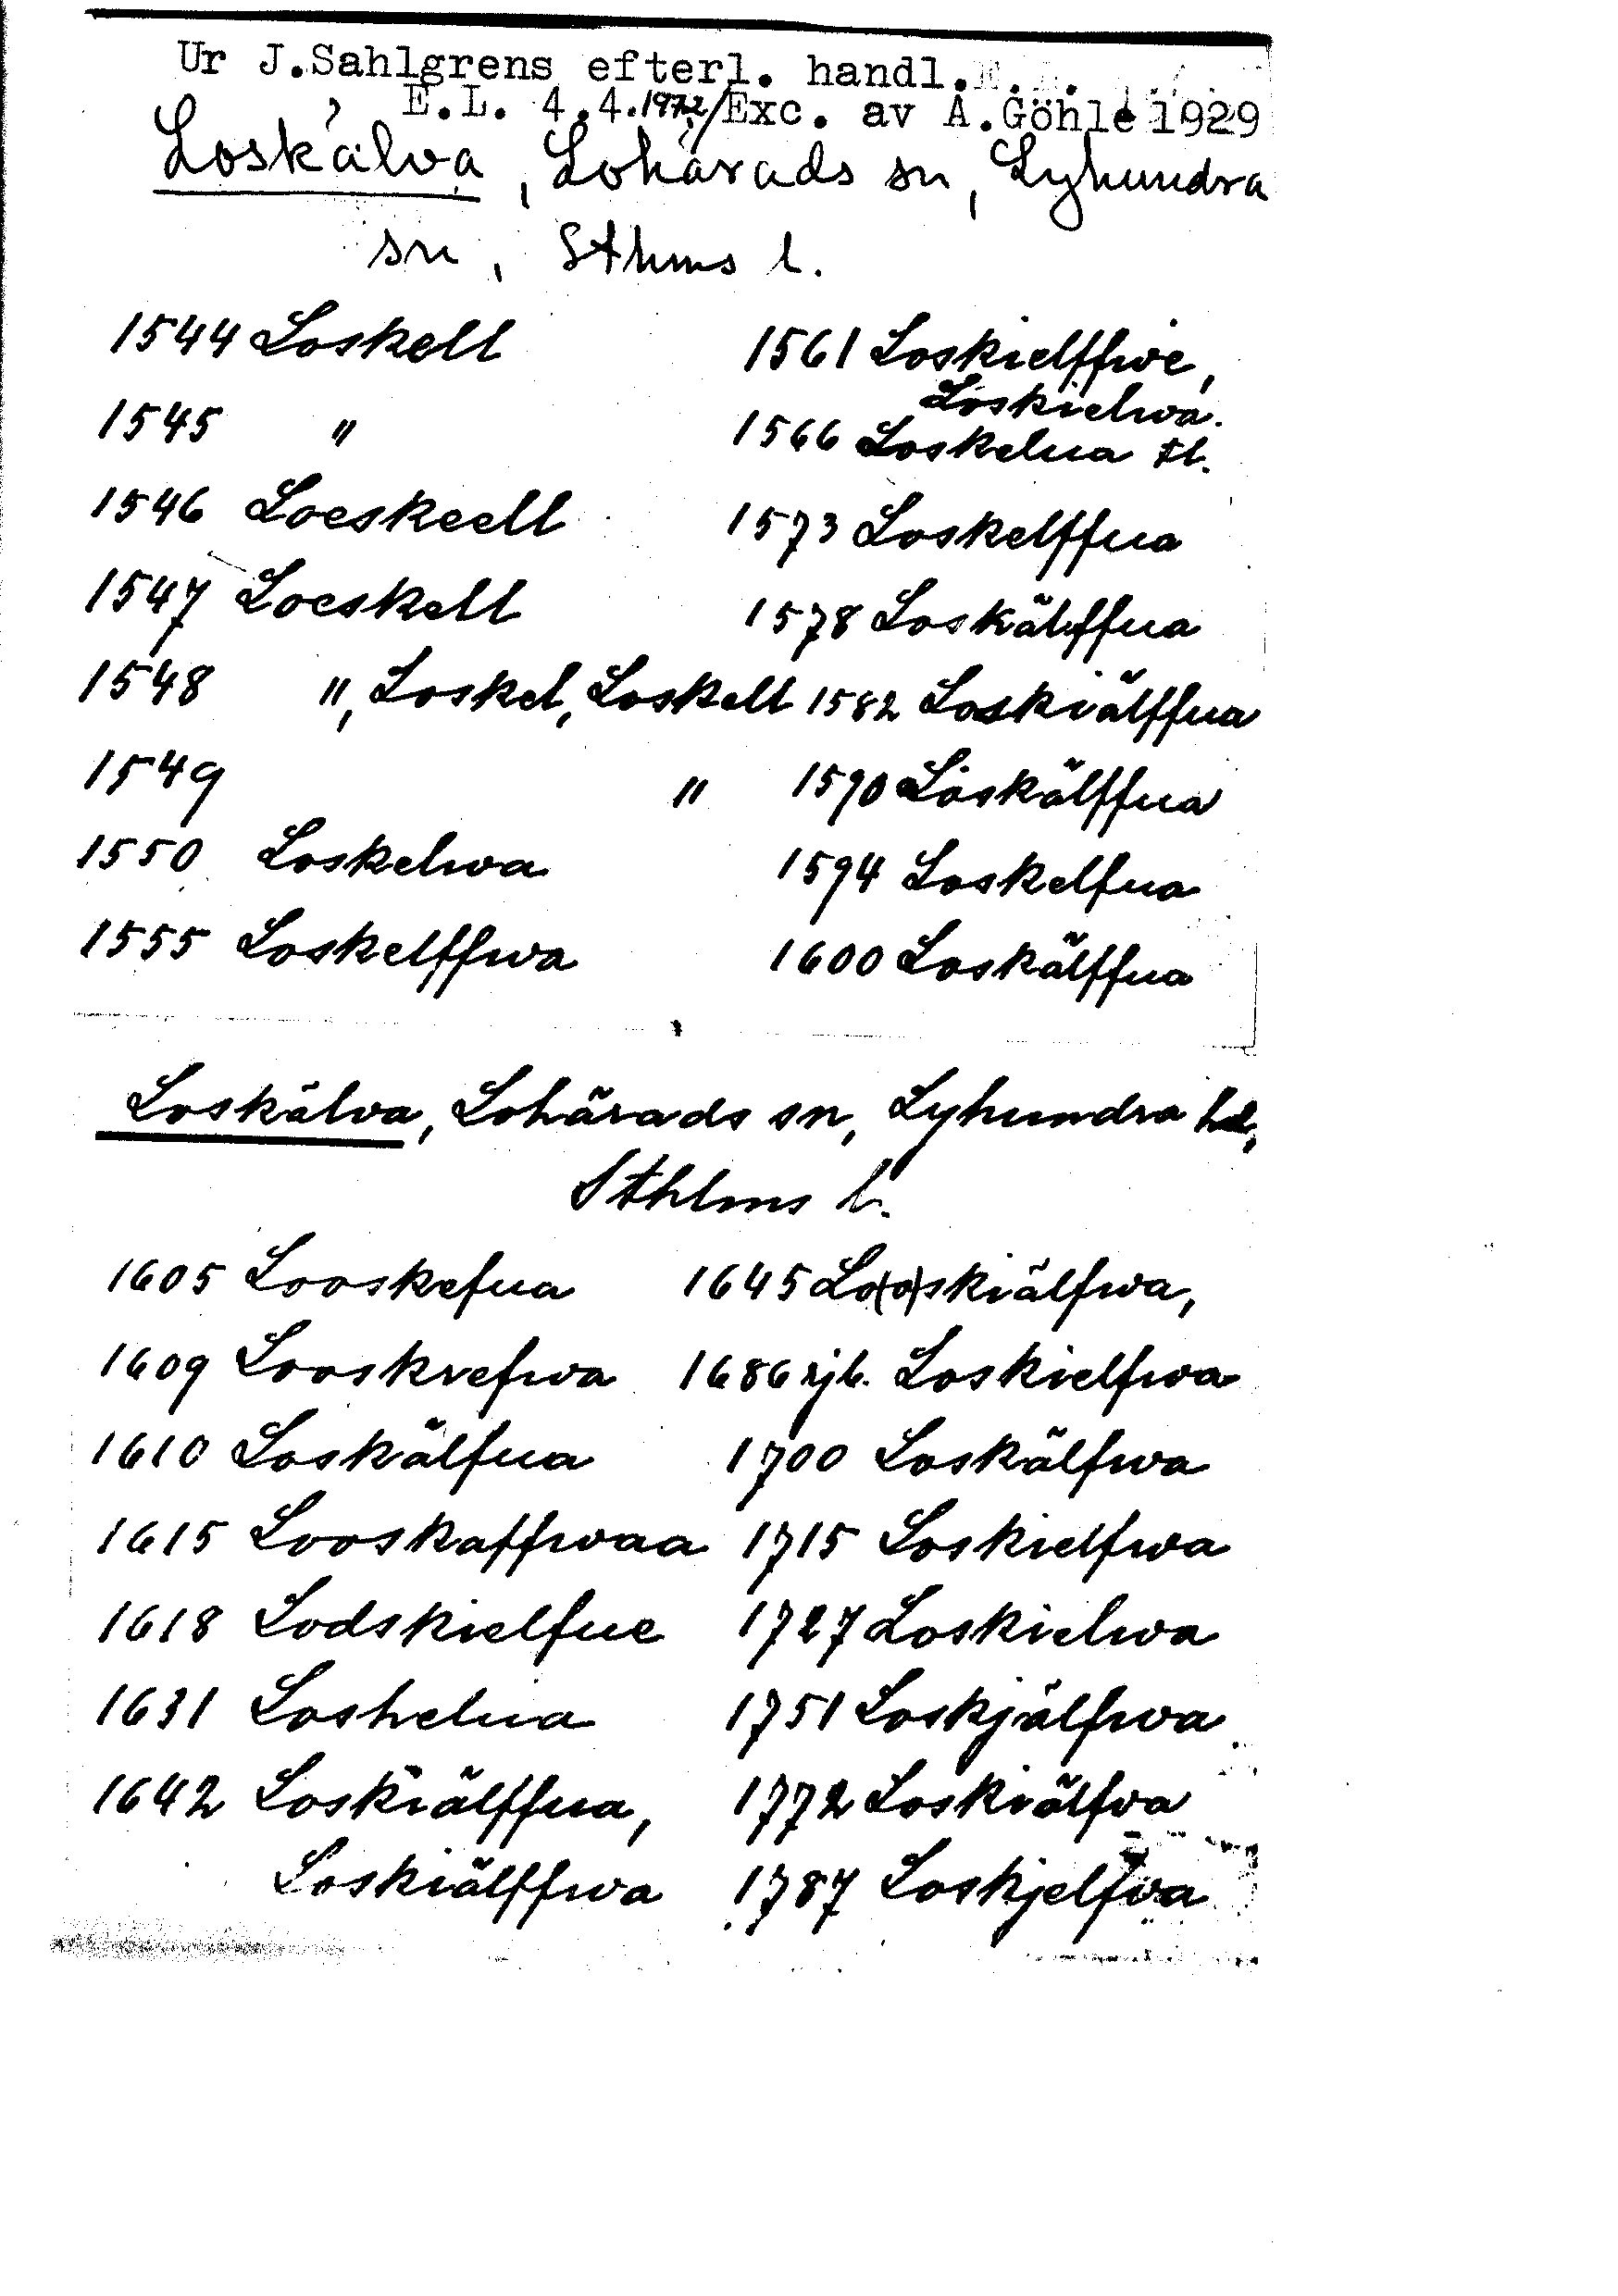 Ur J.Sahlgrens efterl. handl.
E.L. 4.4.1972/Exc. av A.Göhle 1929
Loskälva, Lohärads sn, Lyhundra
sn, Sthms l.
1544 Loskell 1561 Loskielffwe,
Loskielwa.
1545 " 1566 Loskelua tl.
1546 Loeskeell 1573 Loskelffua
1547 Loeskell 1578 Loskälffua
1548 ", Loskel, Loskell 1582 Loskiälffua
1549 " 1590 Loskälffua
1550 Loskelwa 1594 Loskelfua
1555 Loskelffwa 1600 Loskälffua
Loskälva, Lohärads sn, Lyhundra hd,
Sthlms l.
1605 Looskefua 1645 Lo(o)skiälfwa,
1609 Looskrefwa 1686 rjb. Loskielfwa
1610 Loskälfua 1700 Loskälfwa
1615 Looskaffwaa 1715 Loskielfwa
1618 Lodskielfue 1727 Loskielwa
1631 Loshelua 1751 Loskjälfwa
1642 Loskiälffua, 1772 Loskiälfva
Loskiälffwa 1787 Loskjelfva